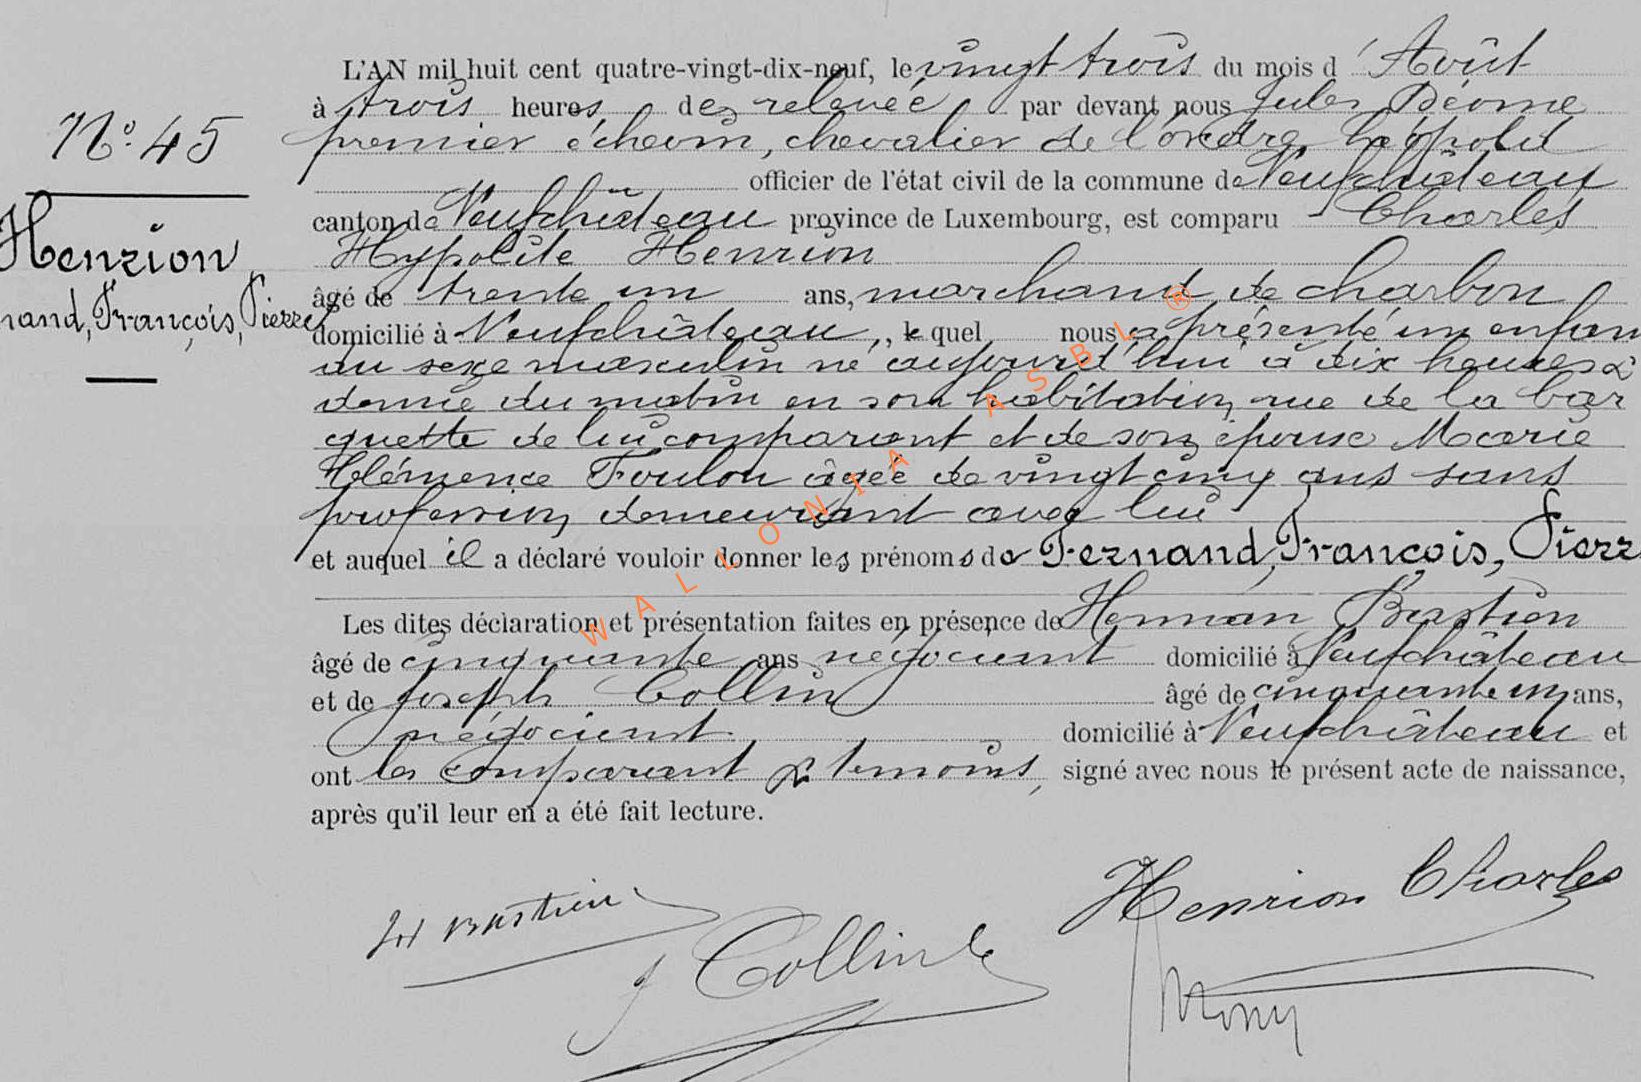 N° 45
Henrion
nand, François, Pierre
L'AN mil huit cent quatre-vingt-dix-neuf, le vingt trois du mois d'Août
à trois heures de relevée par devant nous Jules
premier échevin, chevalier de l'ordre Léopold
officier de l'état civil de la commune de Neufchâteau
canton de Neufchâteau province de Luxembourg, est comparu Charles
Hypolite Henrion
âgé de trente un ans, marchand de charbon
domicilié à Neufchâteau, lequel nous a présenté un enfan
du sexe masculin né aujourd'hui à dix heures &
demie du matin en son habitation, rue de la bar
quette de lui comparant et de son épouse Marie
Clémence Foulon âgée de vingt cinq ans sans
profession, demeurant avec lui
et auquel il a déclaré vouloir donner les prénoms de Fernand, François, Pierr
Les dites déclaration et présentation faites en présence de Herman Bastien
âgé de cinquante ans négociant domicilié à Neufchâteau
et de Joseph Collin âgé de cinquante un ans,
négociant domicilié à Neufchâteau et
ont les comparant & témoins, signé avec nous le présent acte de naissance,
après qu'il leur en a été fait lecture.
H Bastien
J Collin
Henrion Charles
WALLONIA ASBL ®